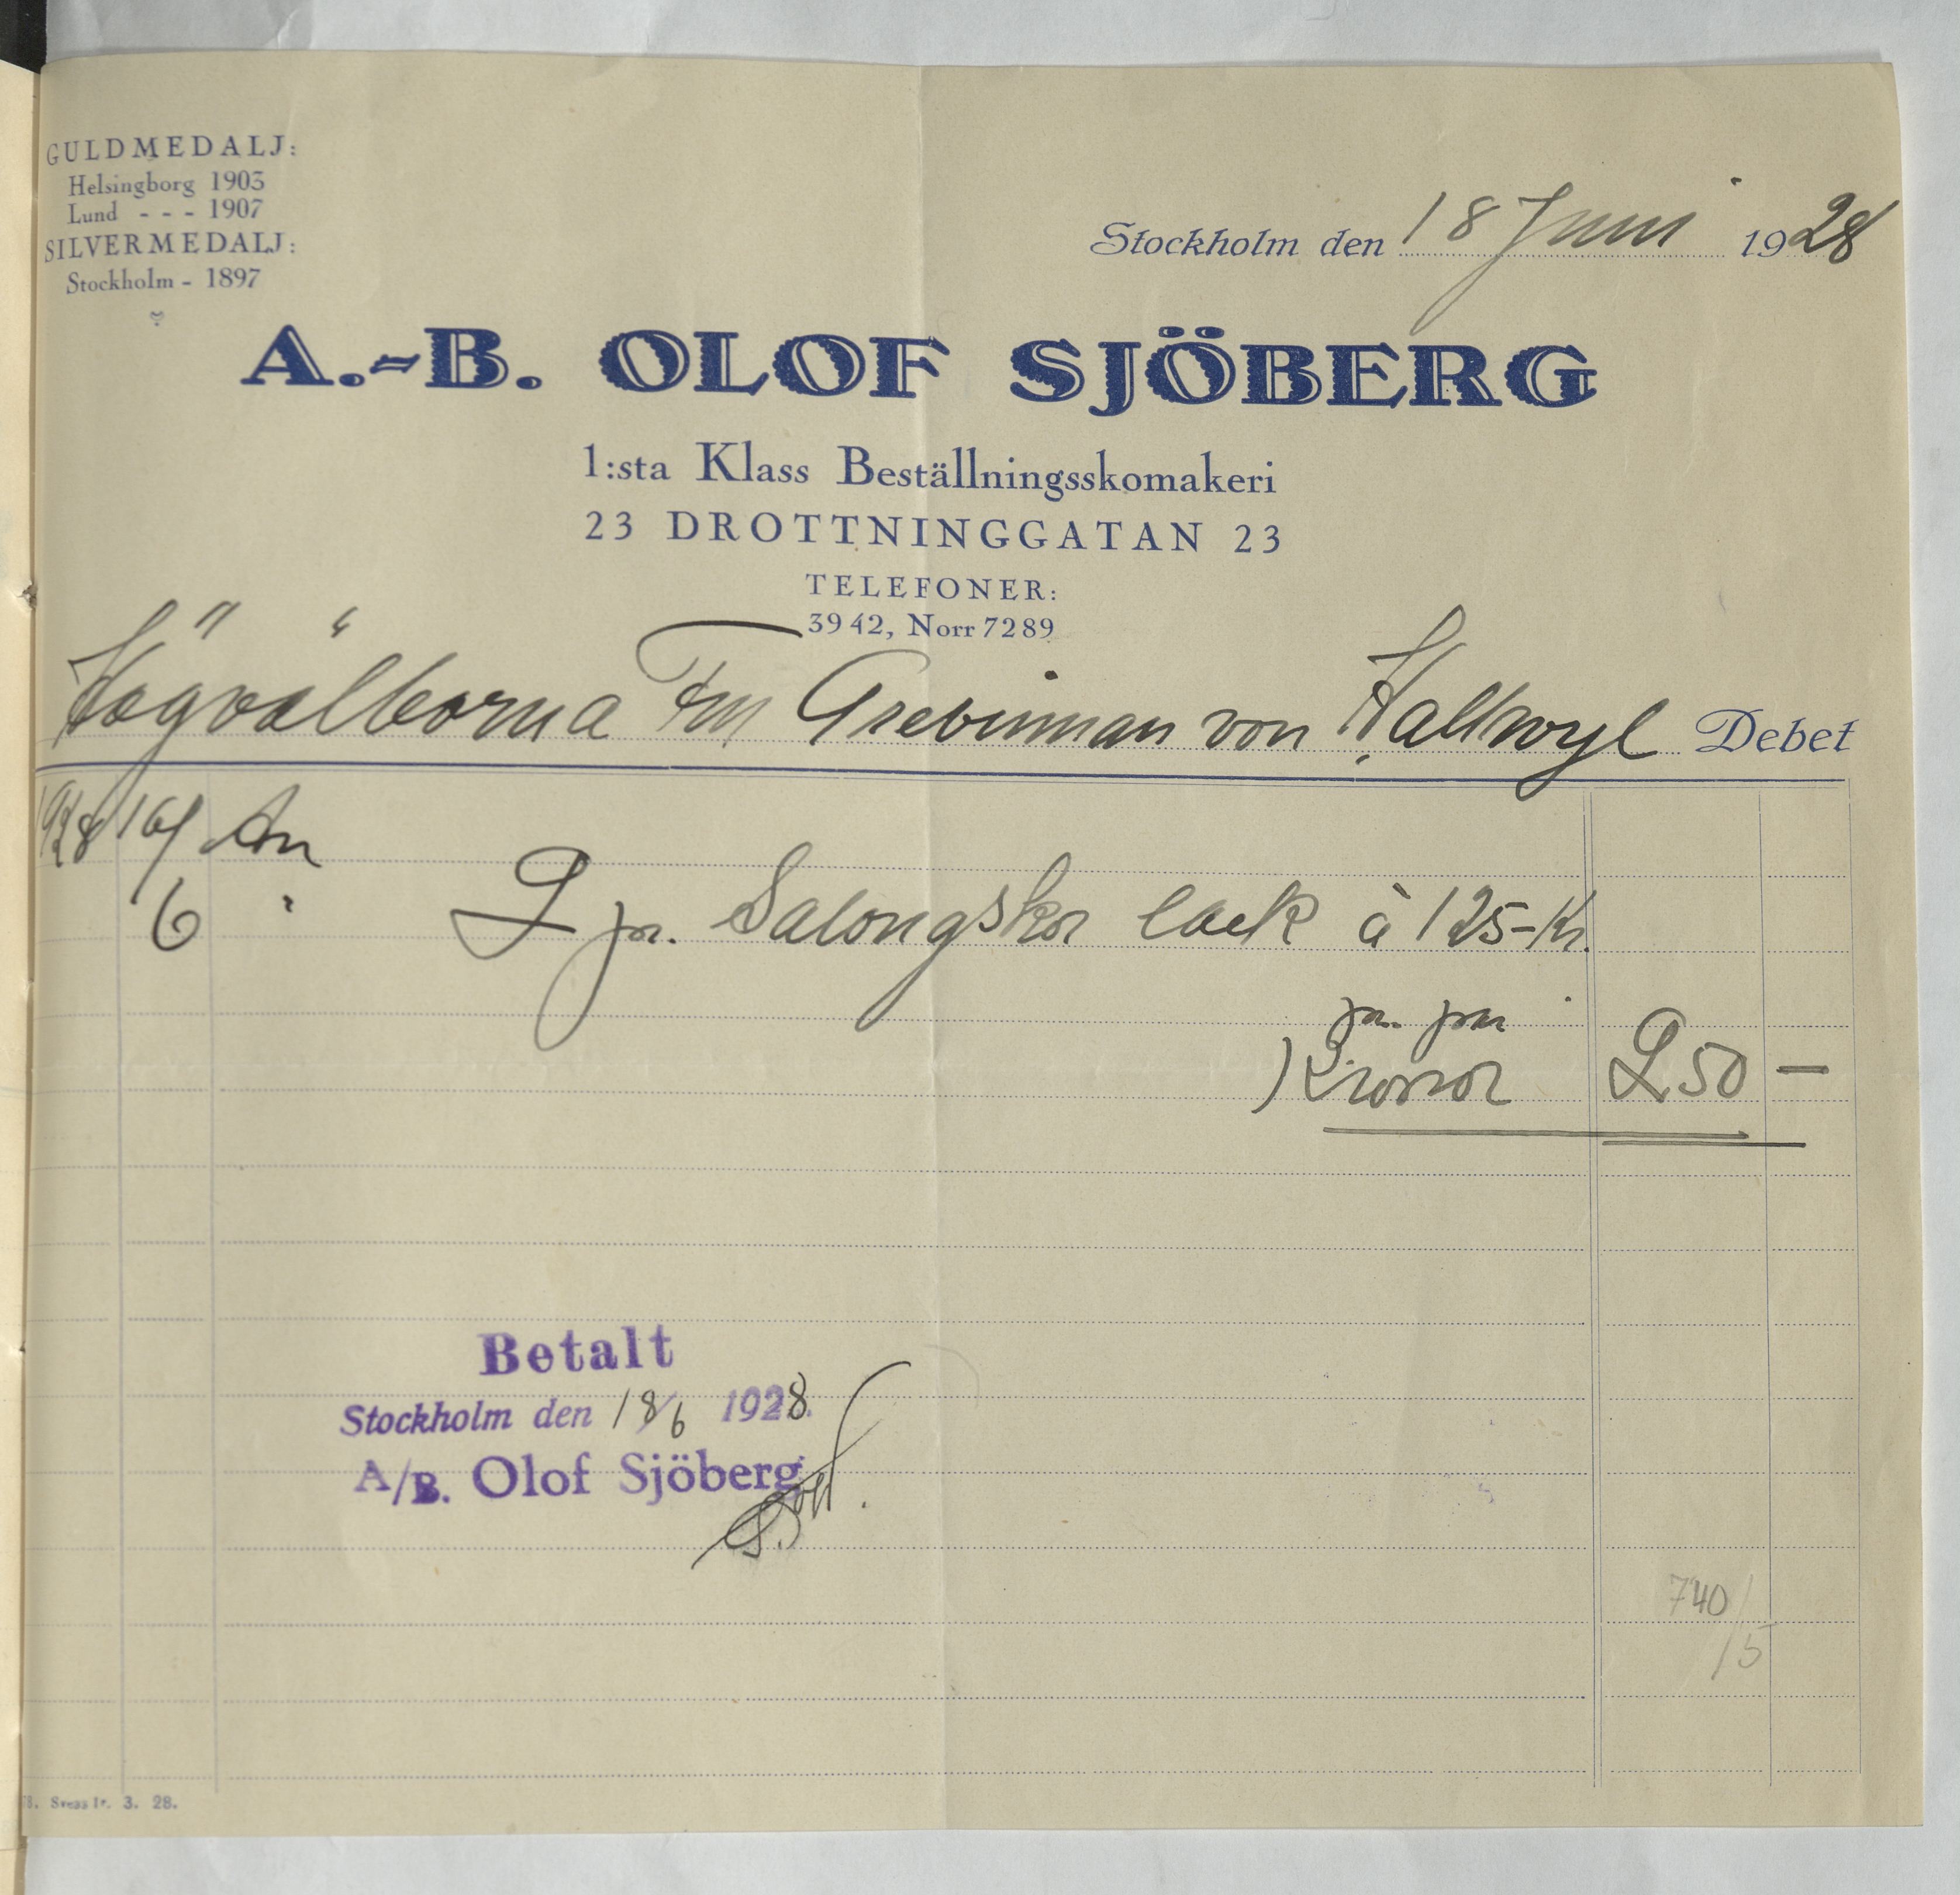 GULDMEDALJ:
Helsingborg 1903
Lund - - - 1907
SILVERMEDALJ:
Stockholm - 1897
Stockholm den 18 Juni 1928
A.-B. OLOF SJÖBERG
1:sta Klass Beställningsskomakeri
23 DROTTNINGGATAN 23
TELEFONER:
3942, Norr 7289
Högvälborna Fru Grevinnan von Hallwyl Debet
1928 16/6 An
2 pr. Salongskor lack à 125-Kr.
pr. par
Kronor 250 —
Betalt
Stockholm den 18/6 1928.
A/B. Olof Sjöberg
740/15
3. 28.